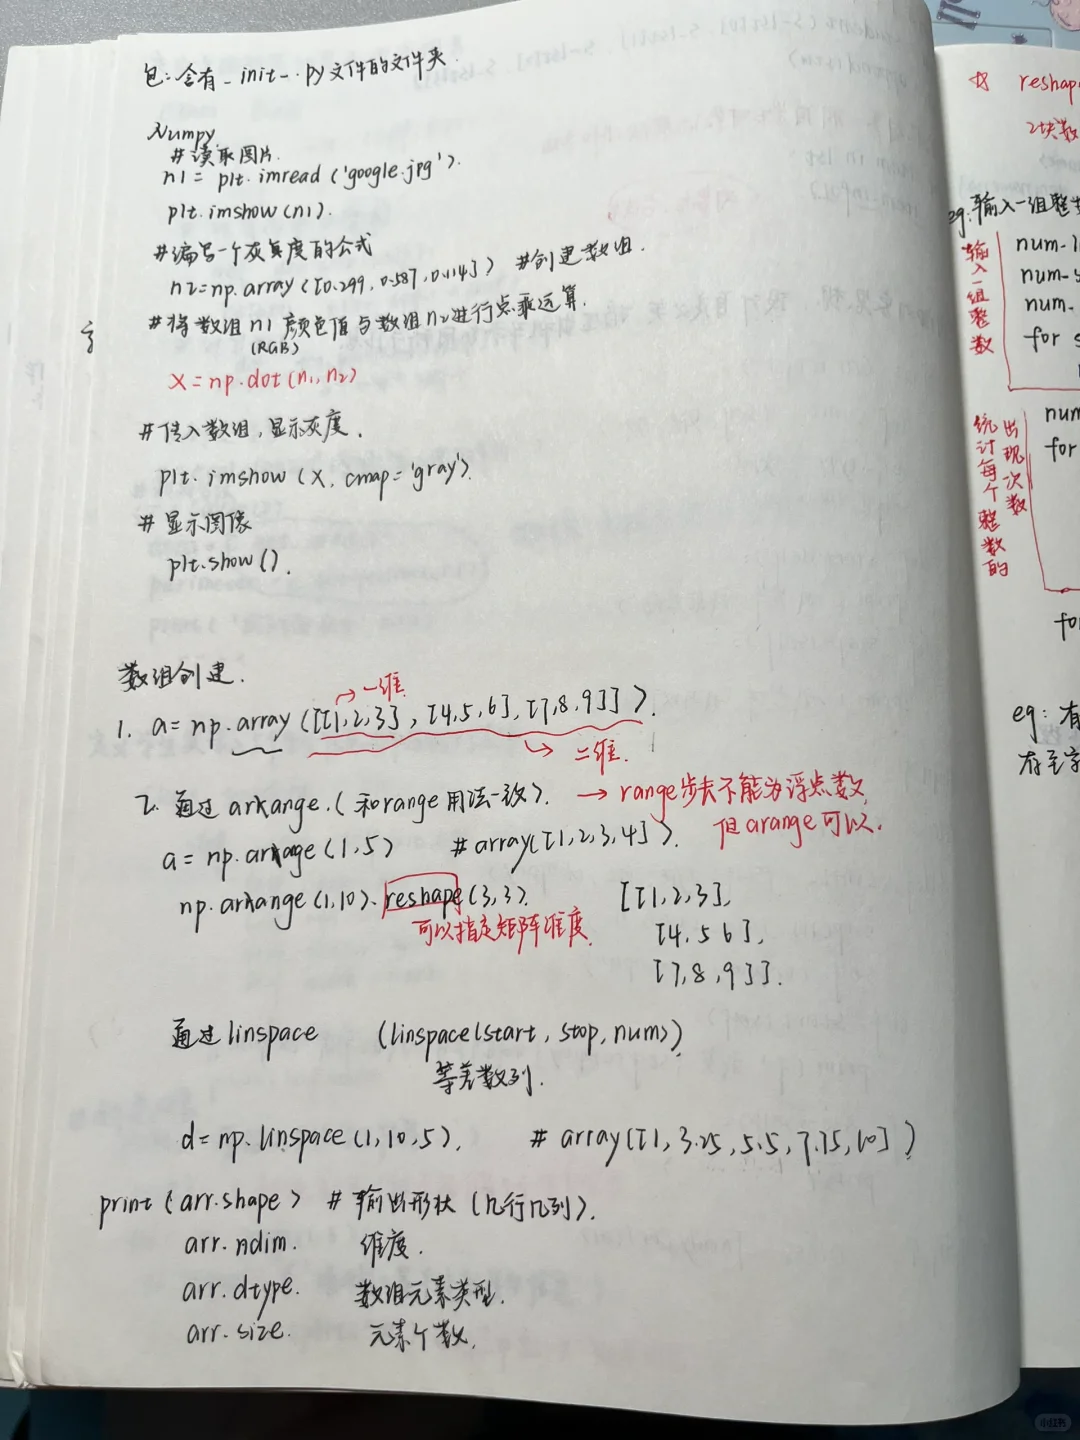 包:含有_init_.py文件的文件夹.
Numpy
#读取图片.
n1= plt.imread('google.jpg').
plt.imshow(n1).
#编写一个灰真度的公式
n2=np.array([0.299,0.587,0.114]) #创建数组.
#将数组n1颜色值与数组n2进行点乘运算.
(RGB)
X=np.dot(n1,n2)
#传入数组,显示灰度.
plt.imshow(X, cmap='gray').
#显示图像
plt.show().
数组创建.
→一维
1. a=np.array([[1,2,3],[4,5,6],[7,8,9]]).
→二维.
2. 通过arkange.(和range用法一致). →range步长不能为浮点数,
但arange可以.
a=np.arkage(1,5) #array([1,2,3,4]).
np.arkange(1,10).reshape(3,3). [[1,2,3],
可以指定矩阵维度. [4,5 6],
[7,8,9]].
通过linspace (linspace(start,stop,nums))
等差数列.
d=np.linspace(1,10,5). #array([1,3.25,5.5,7.75,10])
print(arr.shape) #输出形状(几行几列).
arr.ndim. 维度.
arr.dtype. 数组元素类型.
arr.size. 元素个数.
☆ reshap
eg:输入一组整
输入一组整数
num-
num-
num.
for
统计每个整数的
出现次数
num
for
for
eg:有
存至字
小红书